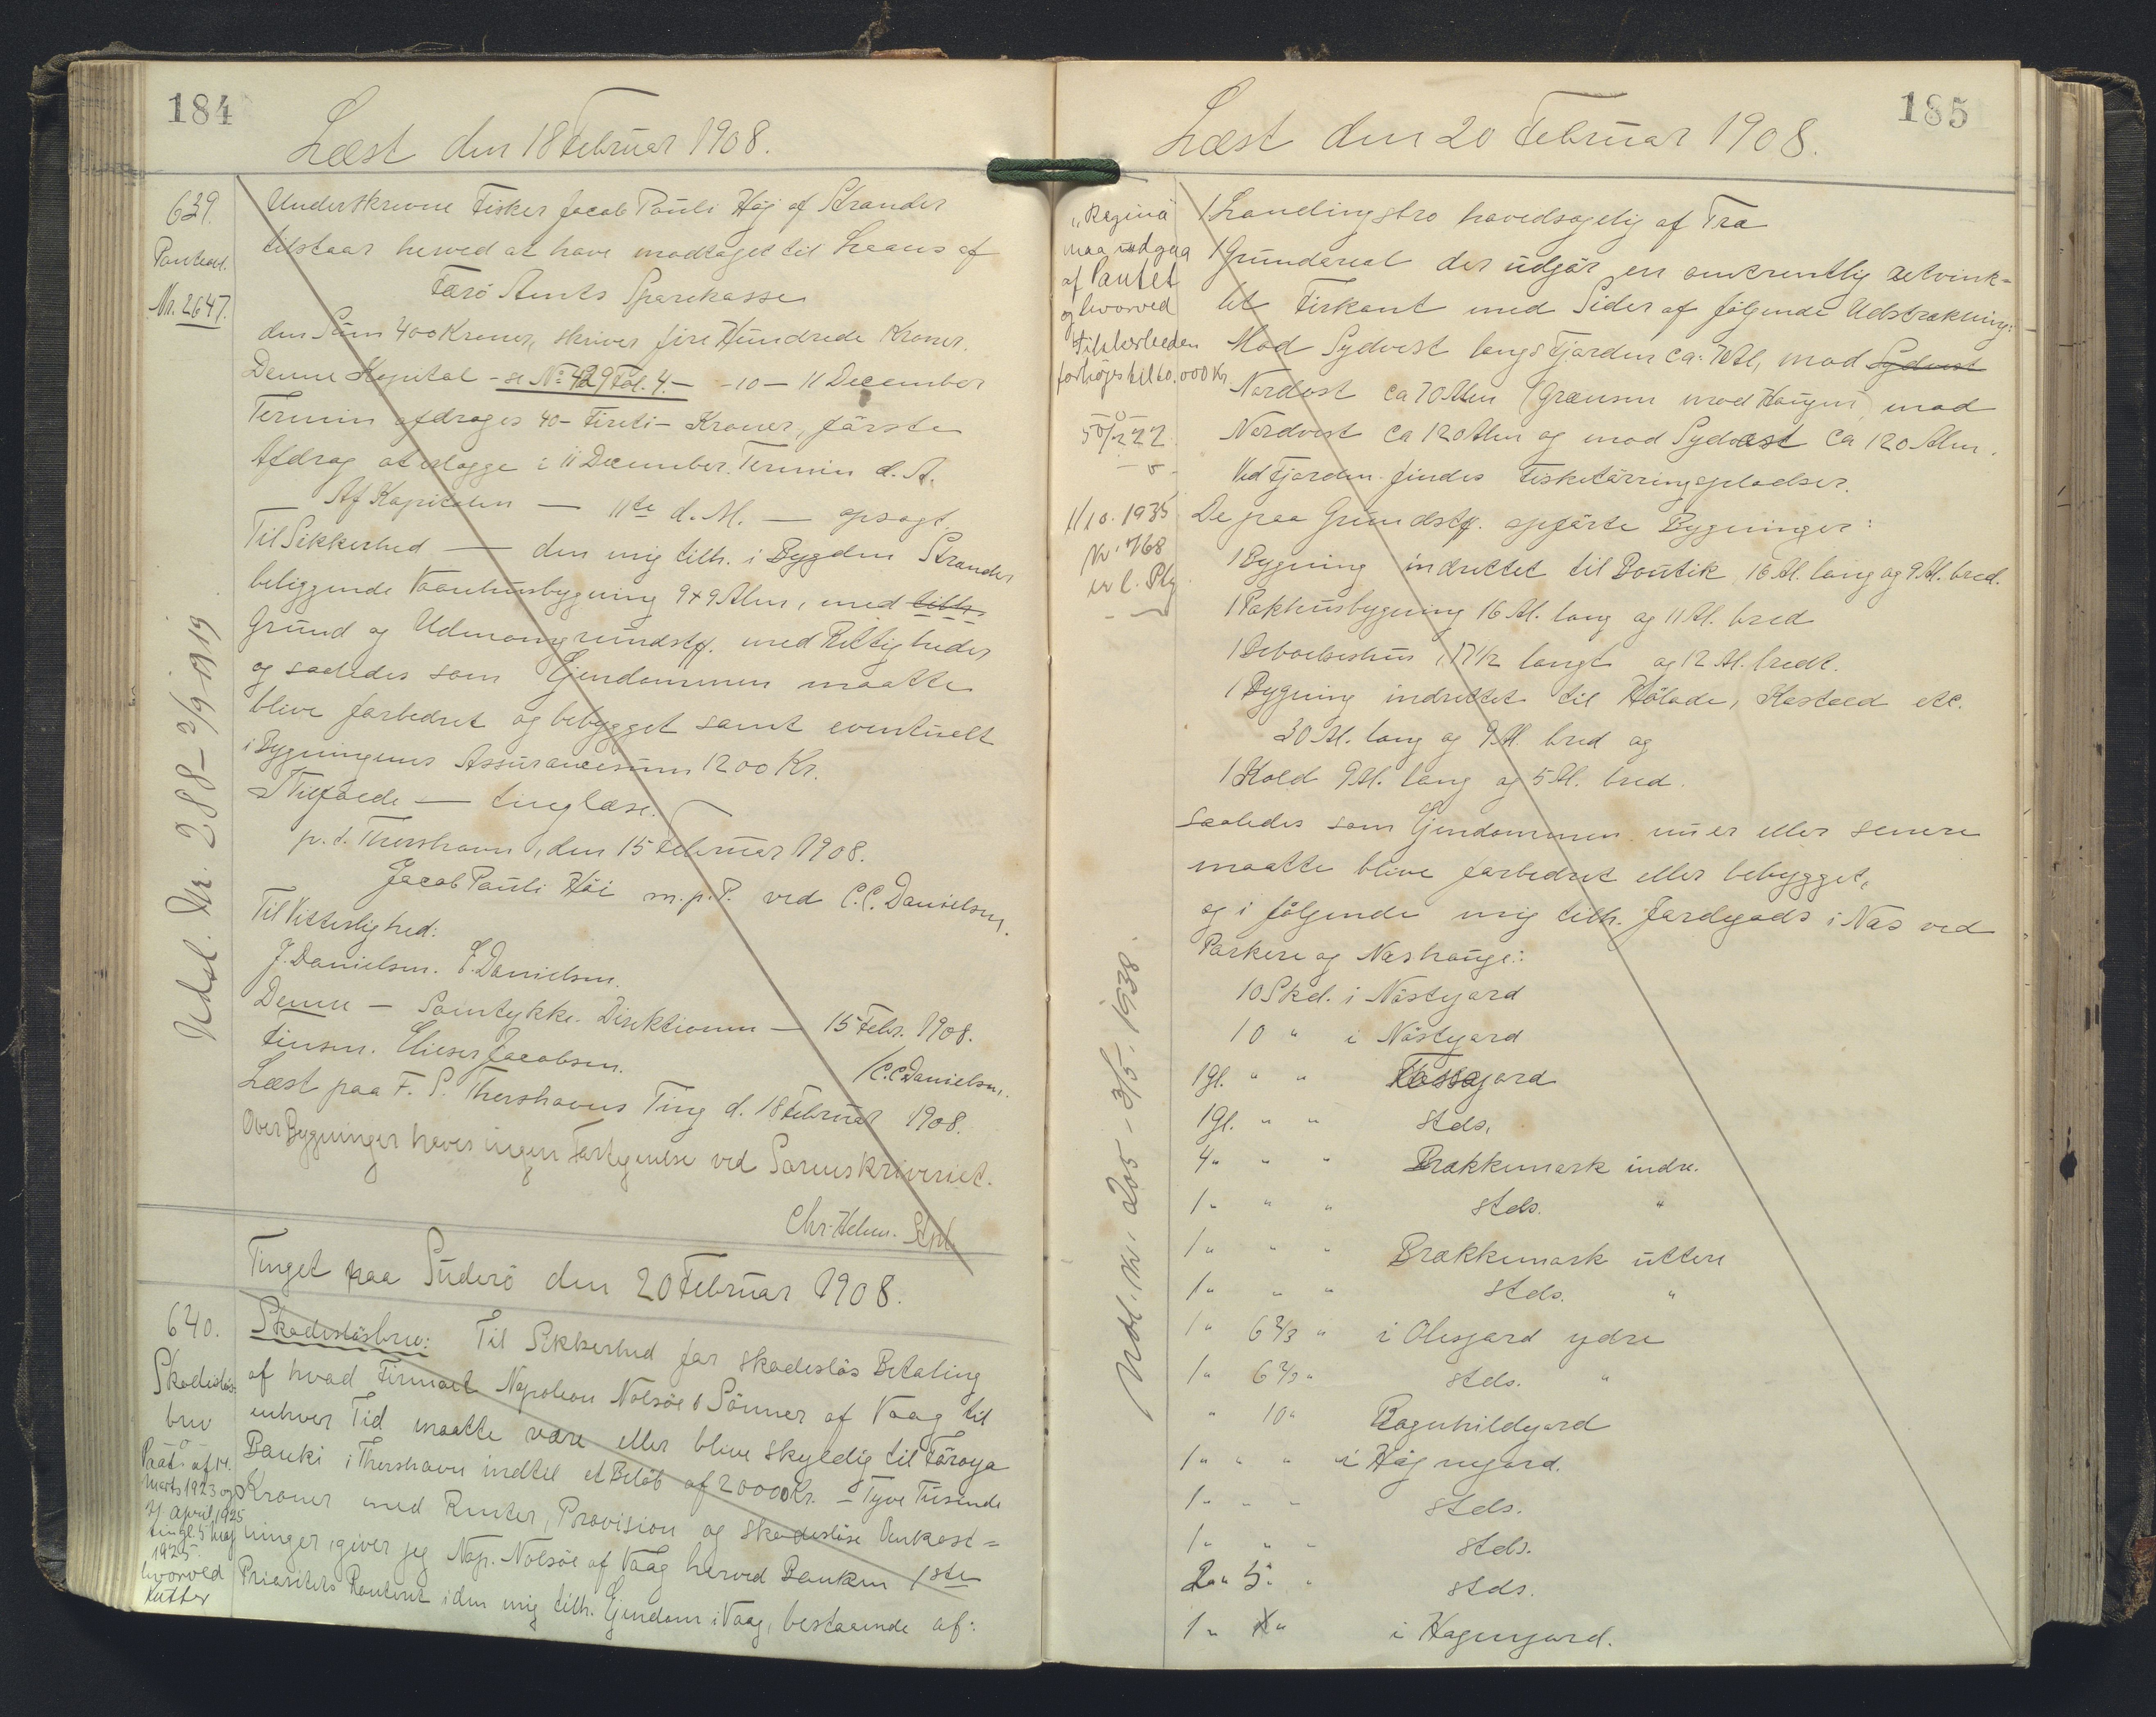 184
Læst den 18 Februar 1908.
639.
Panteobl.
Nr. 2647.
Underskrevne Fisker Jacob Pauli Høj af Strander
tilstaar herved at have modtaget til Laans af
Færö Amts Sparekasse
den Sum 400 Kroner, skriver fire Hundrede Kroner.
Denne Kapital - se No 429 Fol. 4. - -10- 11 December
Termin afdrages 40 - Fireti - Kroner, første
Afdrag at erlægge i 11 December Termin d. A.
Af Kapitalen — 11te d. M. — opsagt.
Til Sikkerhed — den mig tilh. i Bygden Strander
beliggende Vaanhusbygning 9 x 9 Alen, med tilh.
Grund og Udmarksgrundstk. med Rettigheder
og saaledes som Ejendommen maatte
blive forbedret og bebygget samt eventuelt
i Bygningens Assurancesum 1200 Kr.
I Tilfælde — tinglæse.
p. t. Thorshavn, den 15 Februar 1908.
Jacob Pauli Höi m. p. P. ved C. C. Danielsen.
Til Vitterlighed:
J. Danielsen. E. Danielsen.
Denne — Samtykke. Direktionen — 15 Febr. 1908.
Finsen. Elieser Jacobsen. /C. C. Danielsen.
Læst paa F. S. Thorshavns Ting d. 18 Februar 1908.
Over Bygninger haves ingen Fortegnelse ved Sorenskriveriet.
Chr. Helm.
Udsl. Nr. 288 - 2/9 1919
Tinget paa Suderö den 20 Februar 1908.
640.
Skadeslös-
brev
Paat. af 14.
Marts 1923 og
April 1925
tingl. 5 Maj
1925.
hvorved
kutter
Skadeslösbrev: Til Sikkerhed for skadeslös Betaling
af hvad Firmaet Napoleon Nolsöe & Sönner af Vaag til
enhver Tid maatte være eller blive skyldig til Föroya
Banki i Thorshavn indtil et Belöb af 20000 Kr. - Tyve Tusinde
Kroner med Renter, Provision og skadeslöse Omkost=
ninger, giver jeg Nap. Nolsöe af Vaag herved Banken 1ste
Prioritets Panteret i den mig tilh. Ejendom i Vaag, bestaaende af:
185
Læst den 20 Februar 1908.
"Regina"
maa udgaa
af Pantet
og hvorved
Tilskerheden
forhöjes til 60.000 Kr.
1/10. 1935
Nr. 768
1 Landingsbro hovedsagelig af Træ
1 Grundareal der udgör en omtrentlig retvink=
let Firkant med Sider af fölgende Udstrækning:
Mod Sydvest langs Fjorden ca. 70 Al, mod Sydvest
Nordost ca 70 Alen (Grænsen mod Haugen) mod
Nordvest ca 120 Alen og mod Sydöst ca 120 Alen.
Ved Fjorden findes Fisketörringspladser.
De paa Grundstk. opförte Bygninger:
1 Bygning indrettet til Boutik 16 Al. lang og 9 Al. bred.
1 Pakhusbygning 16 Al. lang og 11 Al. bred
1 Beboelseshus, 17 1/2 langt og 12 Al. bredt.
1 Bygning indrettet til Hölade, Kostald etc.
30 Al. lang og 9 Al. bred og
1 Kold 9 Al. lang og 5 Al. bred.
saaledes som Ejendommen nu er eller senere
maatte blive forbedret eller bebygget,
og i fölgende mig tilh. Jordegods i Næs ved
Porkere og Næshauge:
10 Skd. i Nöstgard
10 " i Nöstgard
1 gl. " " Tössagard
1 gl. " " stds.
4 " " " Brækkumark indre.
1 " " " stds. "
1 " " " Brækkumark uttere
1 " " " stds. "
1 " 6 2/3 " i Olesgard ydre
1 " 6 2/3 " stds. "
" 10 " Ragnhildgard
1 " " " i Högnegard.
1 " " " stds.
1 " " " stds.
2 " 5 " " stds.
1 " " i Hagengard.
Udsl. Nr. 205 - 3/5. 1938.